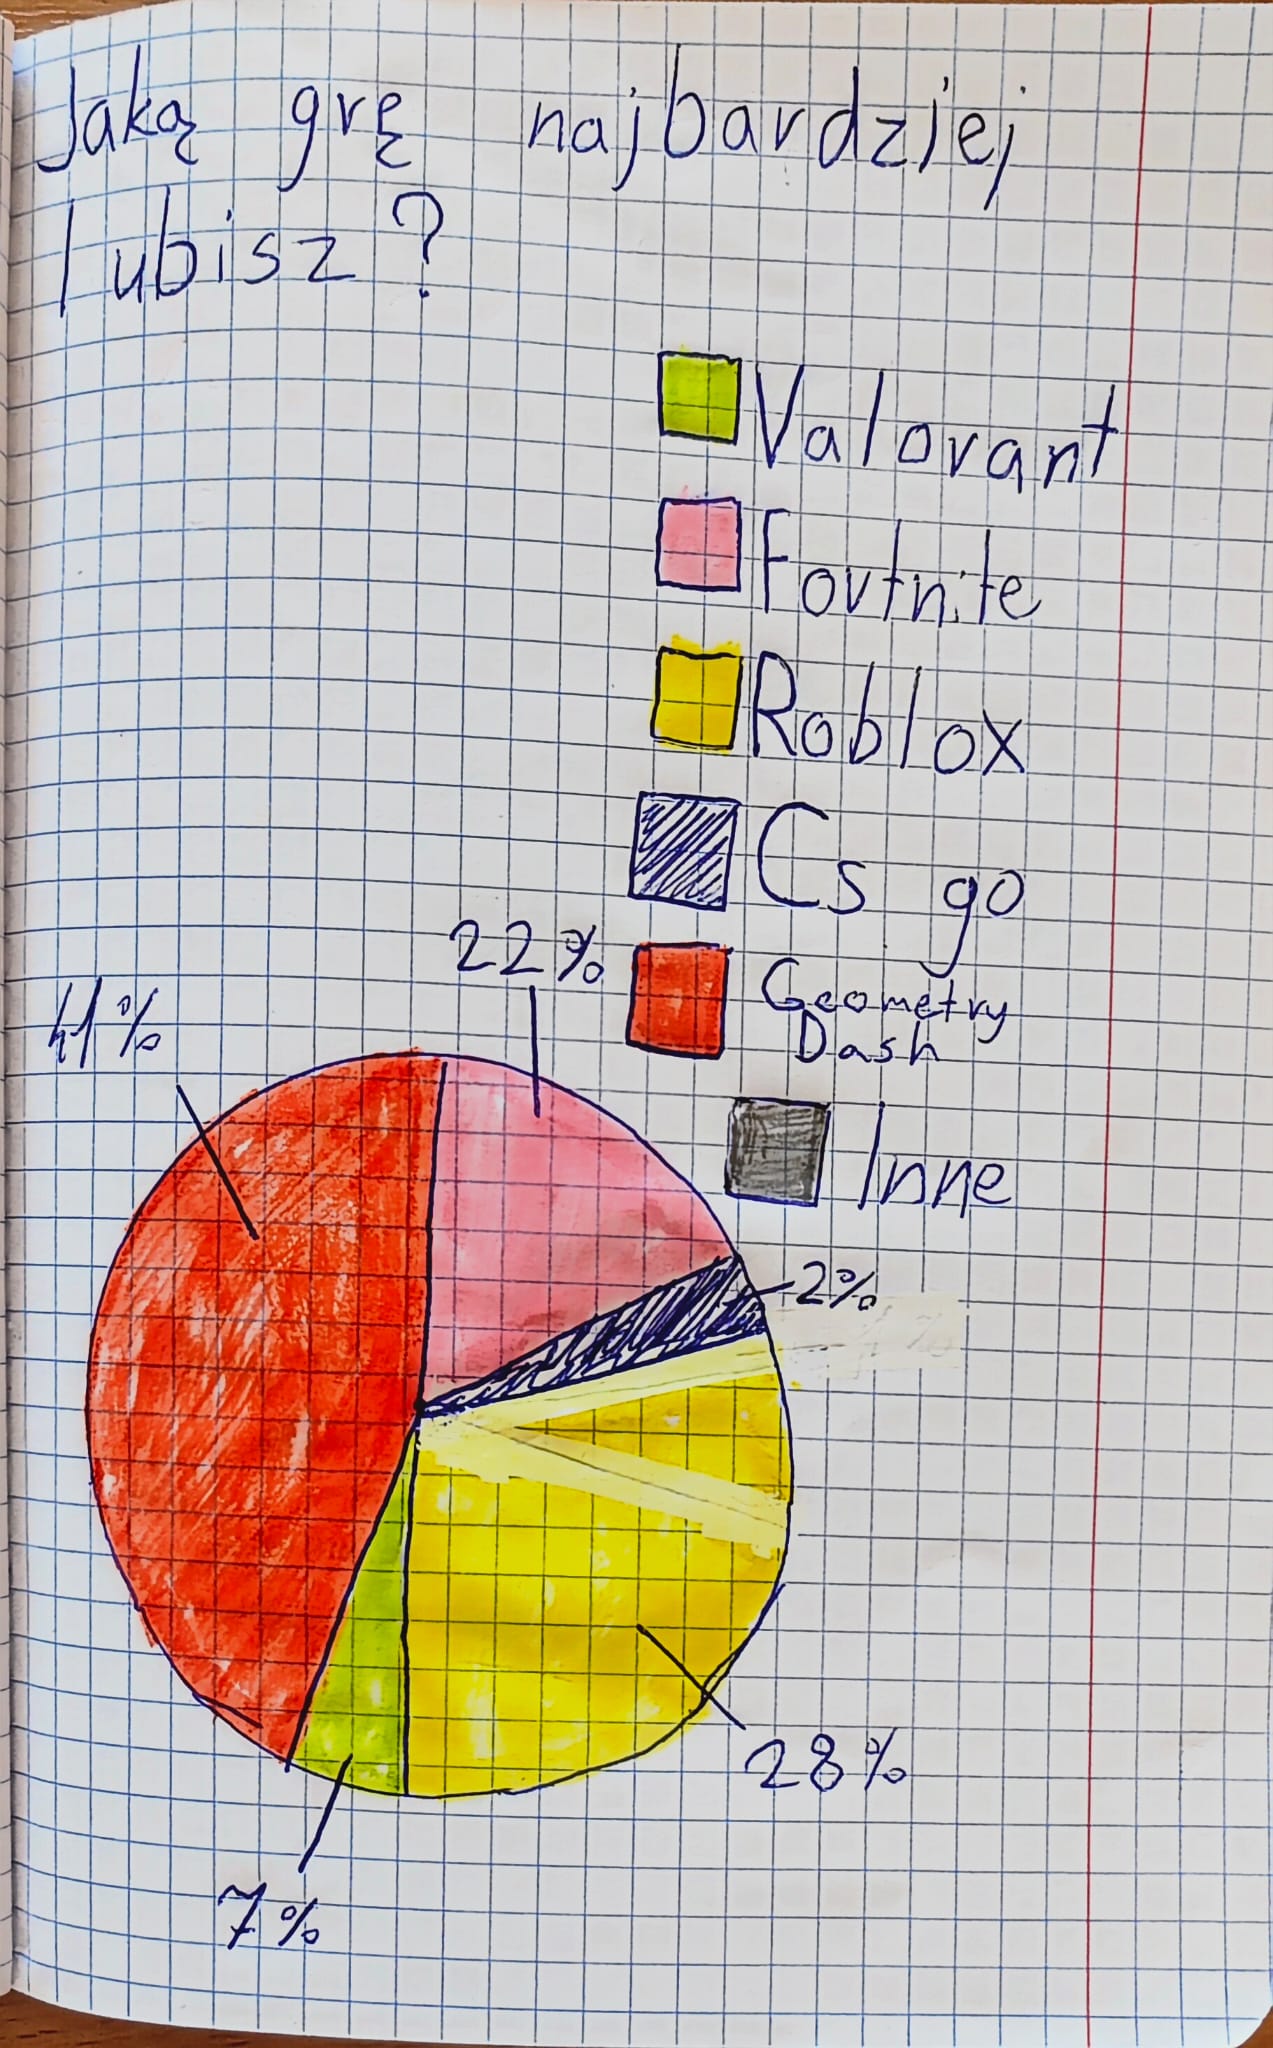 Jaką grę najbardziej
lubisz?
Valorant
Fortnite
Roblox
Cs go
Geometry
Dash
Inne
22%
41%
2%
28%
7%